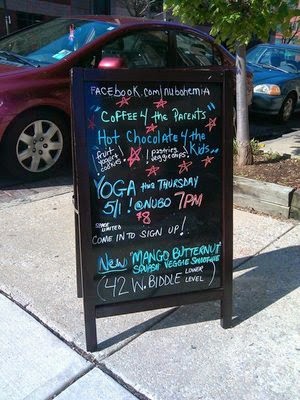 FACEBOOK.com/nubohemia
"COFFEE 4 the PARENTS"
"Hot Chocolate 4 the Kids"
fruit! pastries
yogurt veggie cups
cookies
YOGA this THURSDAY
5/1! @NUBO 7PM
$8
SPACE LIMITED
COME IN TO SIGN UP!
New "MANGO BUTTERNUT
SQUASH VEGGIE SMOOTHIE
(42 W. BIDDLE LOWER LEVEL)